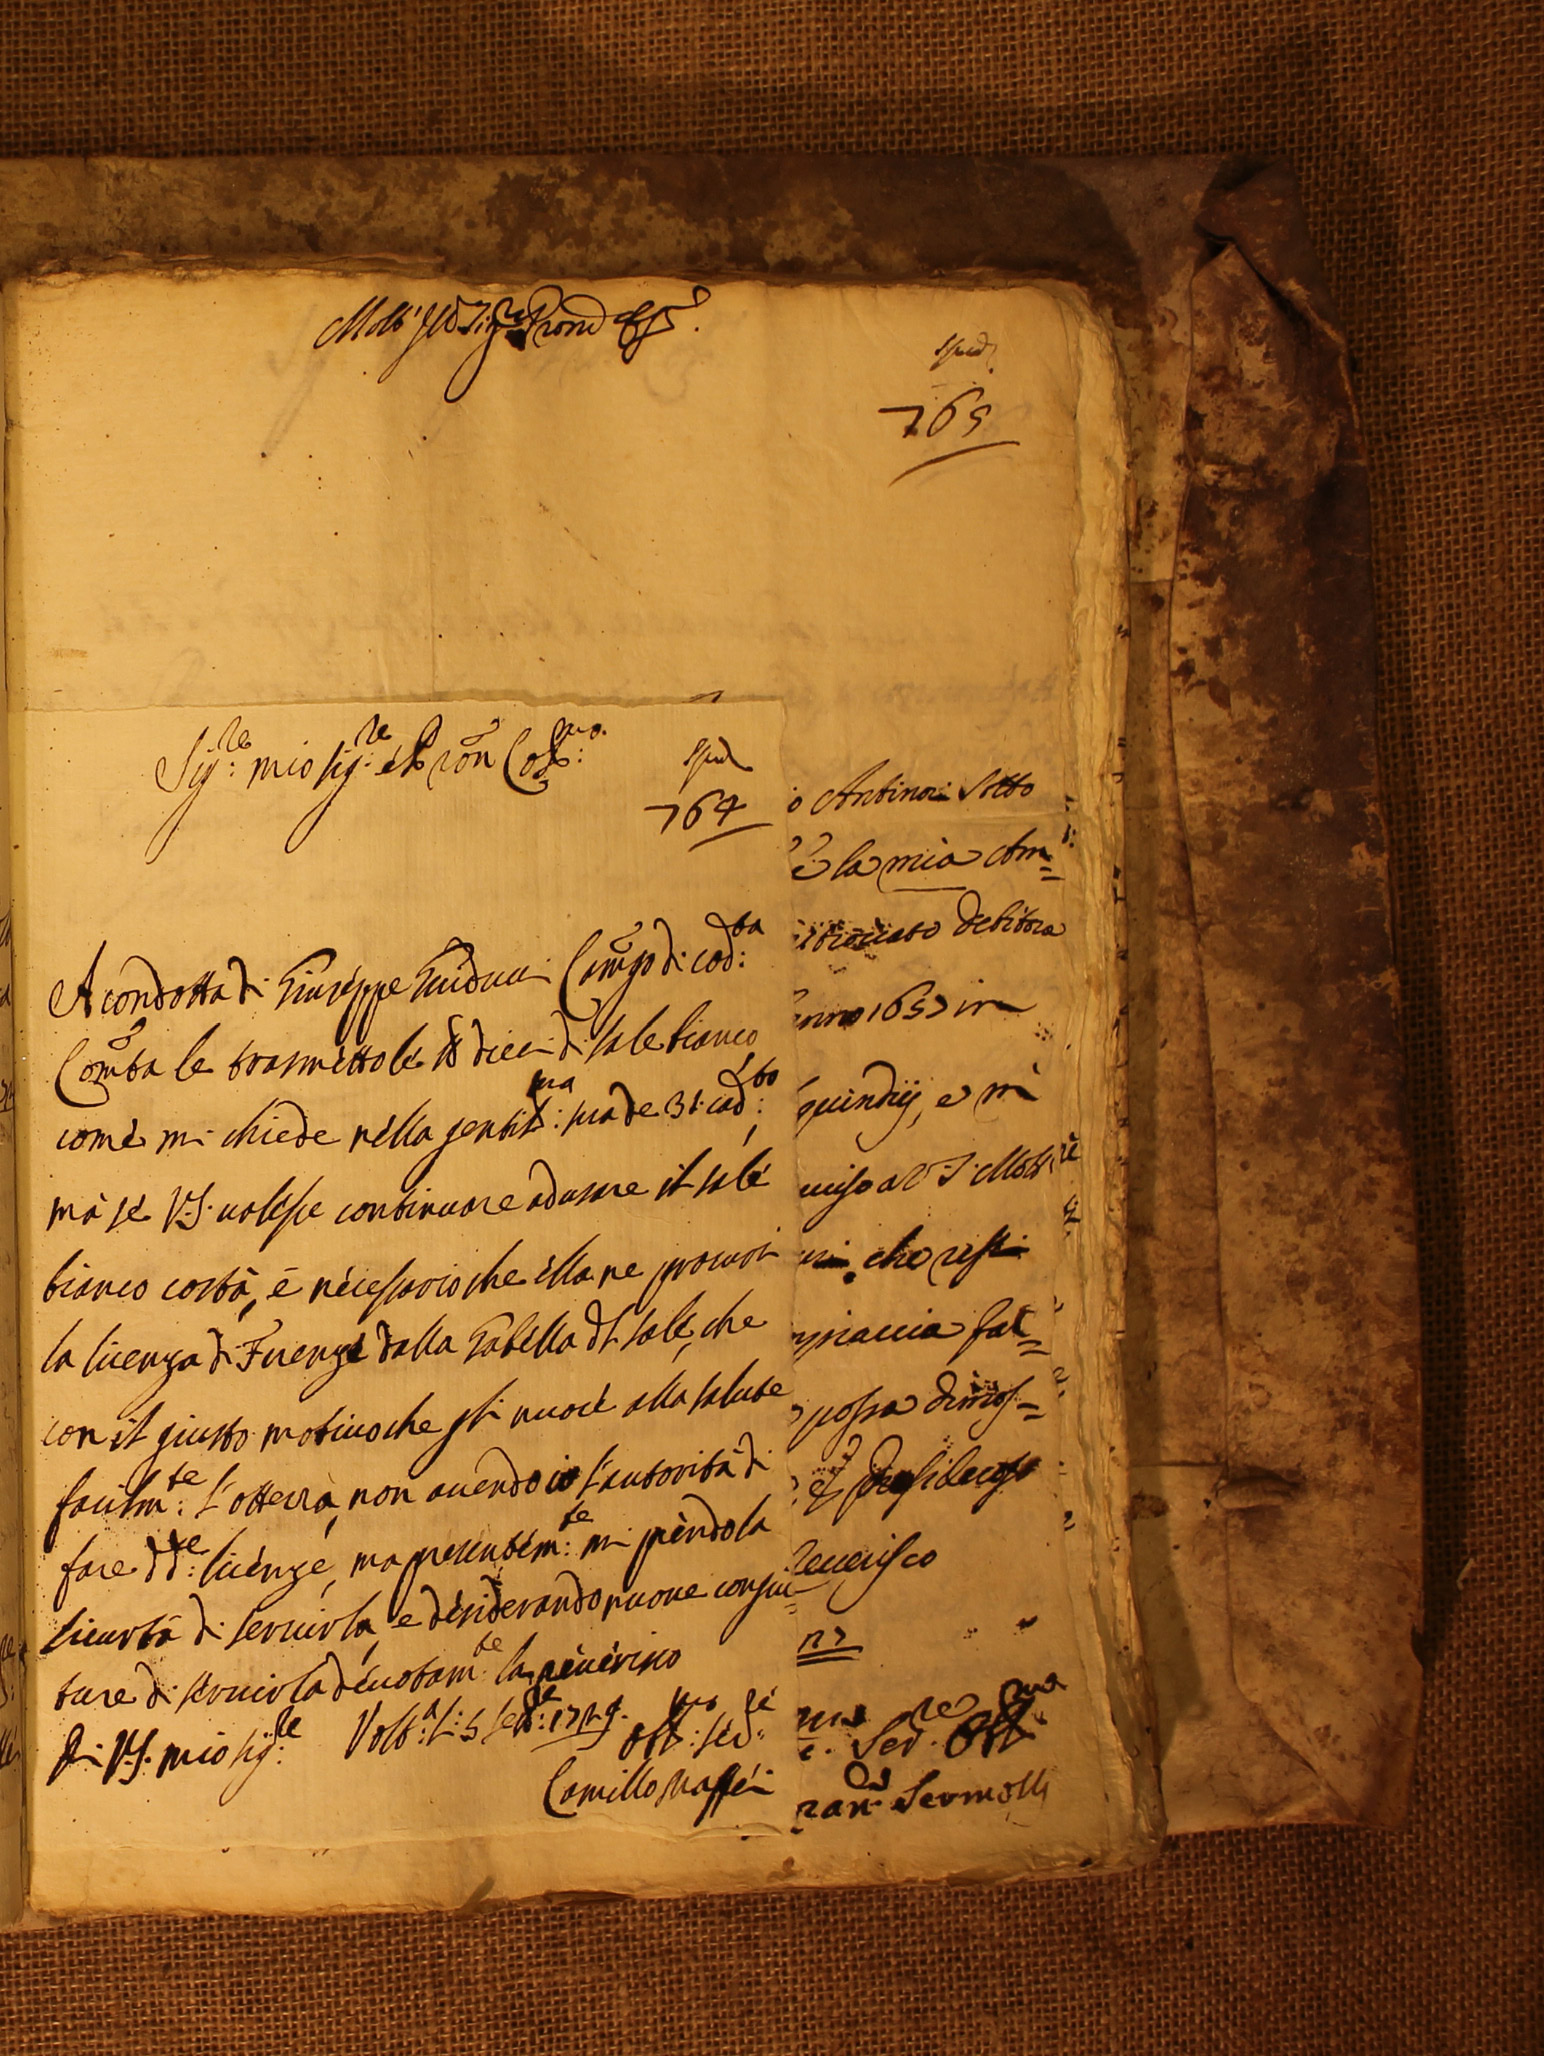 Molt' Ill Sig.re Prone
Sped
765
Sig:re mio Sig:re é Pron Col:mo
Sped
764
A condotta di Giuseppe Guiducci di cod:ta
Comta le trasmetto lé dieci di sale bianco
comé mi chiede nélla gentil:ma sua de 31: cad:to
mà sé V.S. volésse continuare ad usare il salé
bianco costà, é nécessario che élla ne procuri
la licenza di Firenzé dalla Gabélla dl salé, che
con il giusto motivo che gli nuocé alla salute
facilm:te l'otterrà, non avendo io l'autorità di
fare dd:te licénzé, ma presentém:te mi préndo la
sicurtà di servirla, e désiderando nuove congiu=
ture di servirla dévotam:te la révérisco
Di V.S. mio Sig:re Volt:a L: 5 Sett:e 1729.
Obl:mo Sér:é
Camillo Maffei
o Antinori Sotto
é la mia Am=
ritrovato debitora
anno 1657 in
quindij, e mi
aviso a V.S. Molt
che resti
piaccia fat=
possa dimos=
Reverisco
Ser.re Obl.mo
ran.co Sermolli